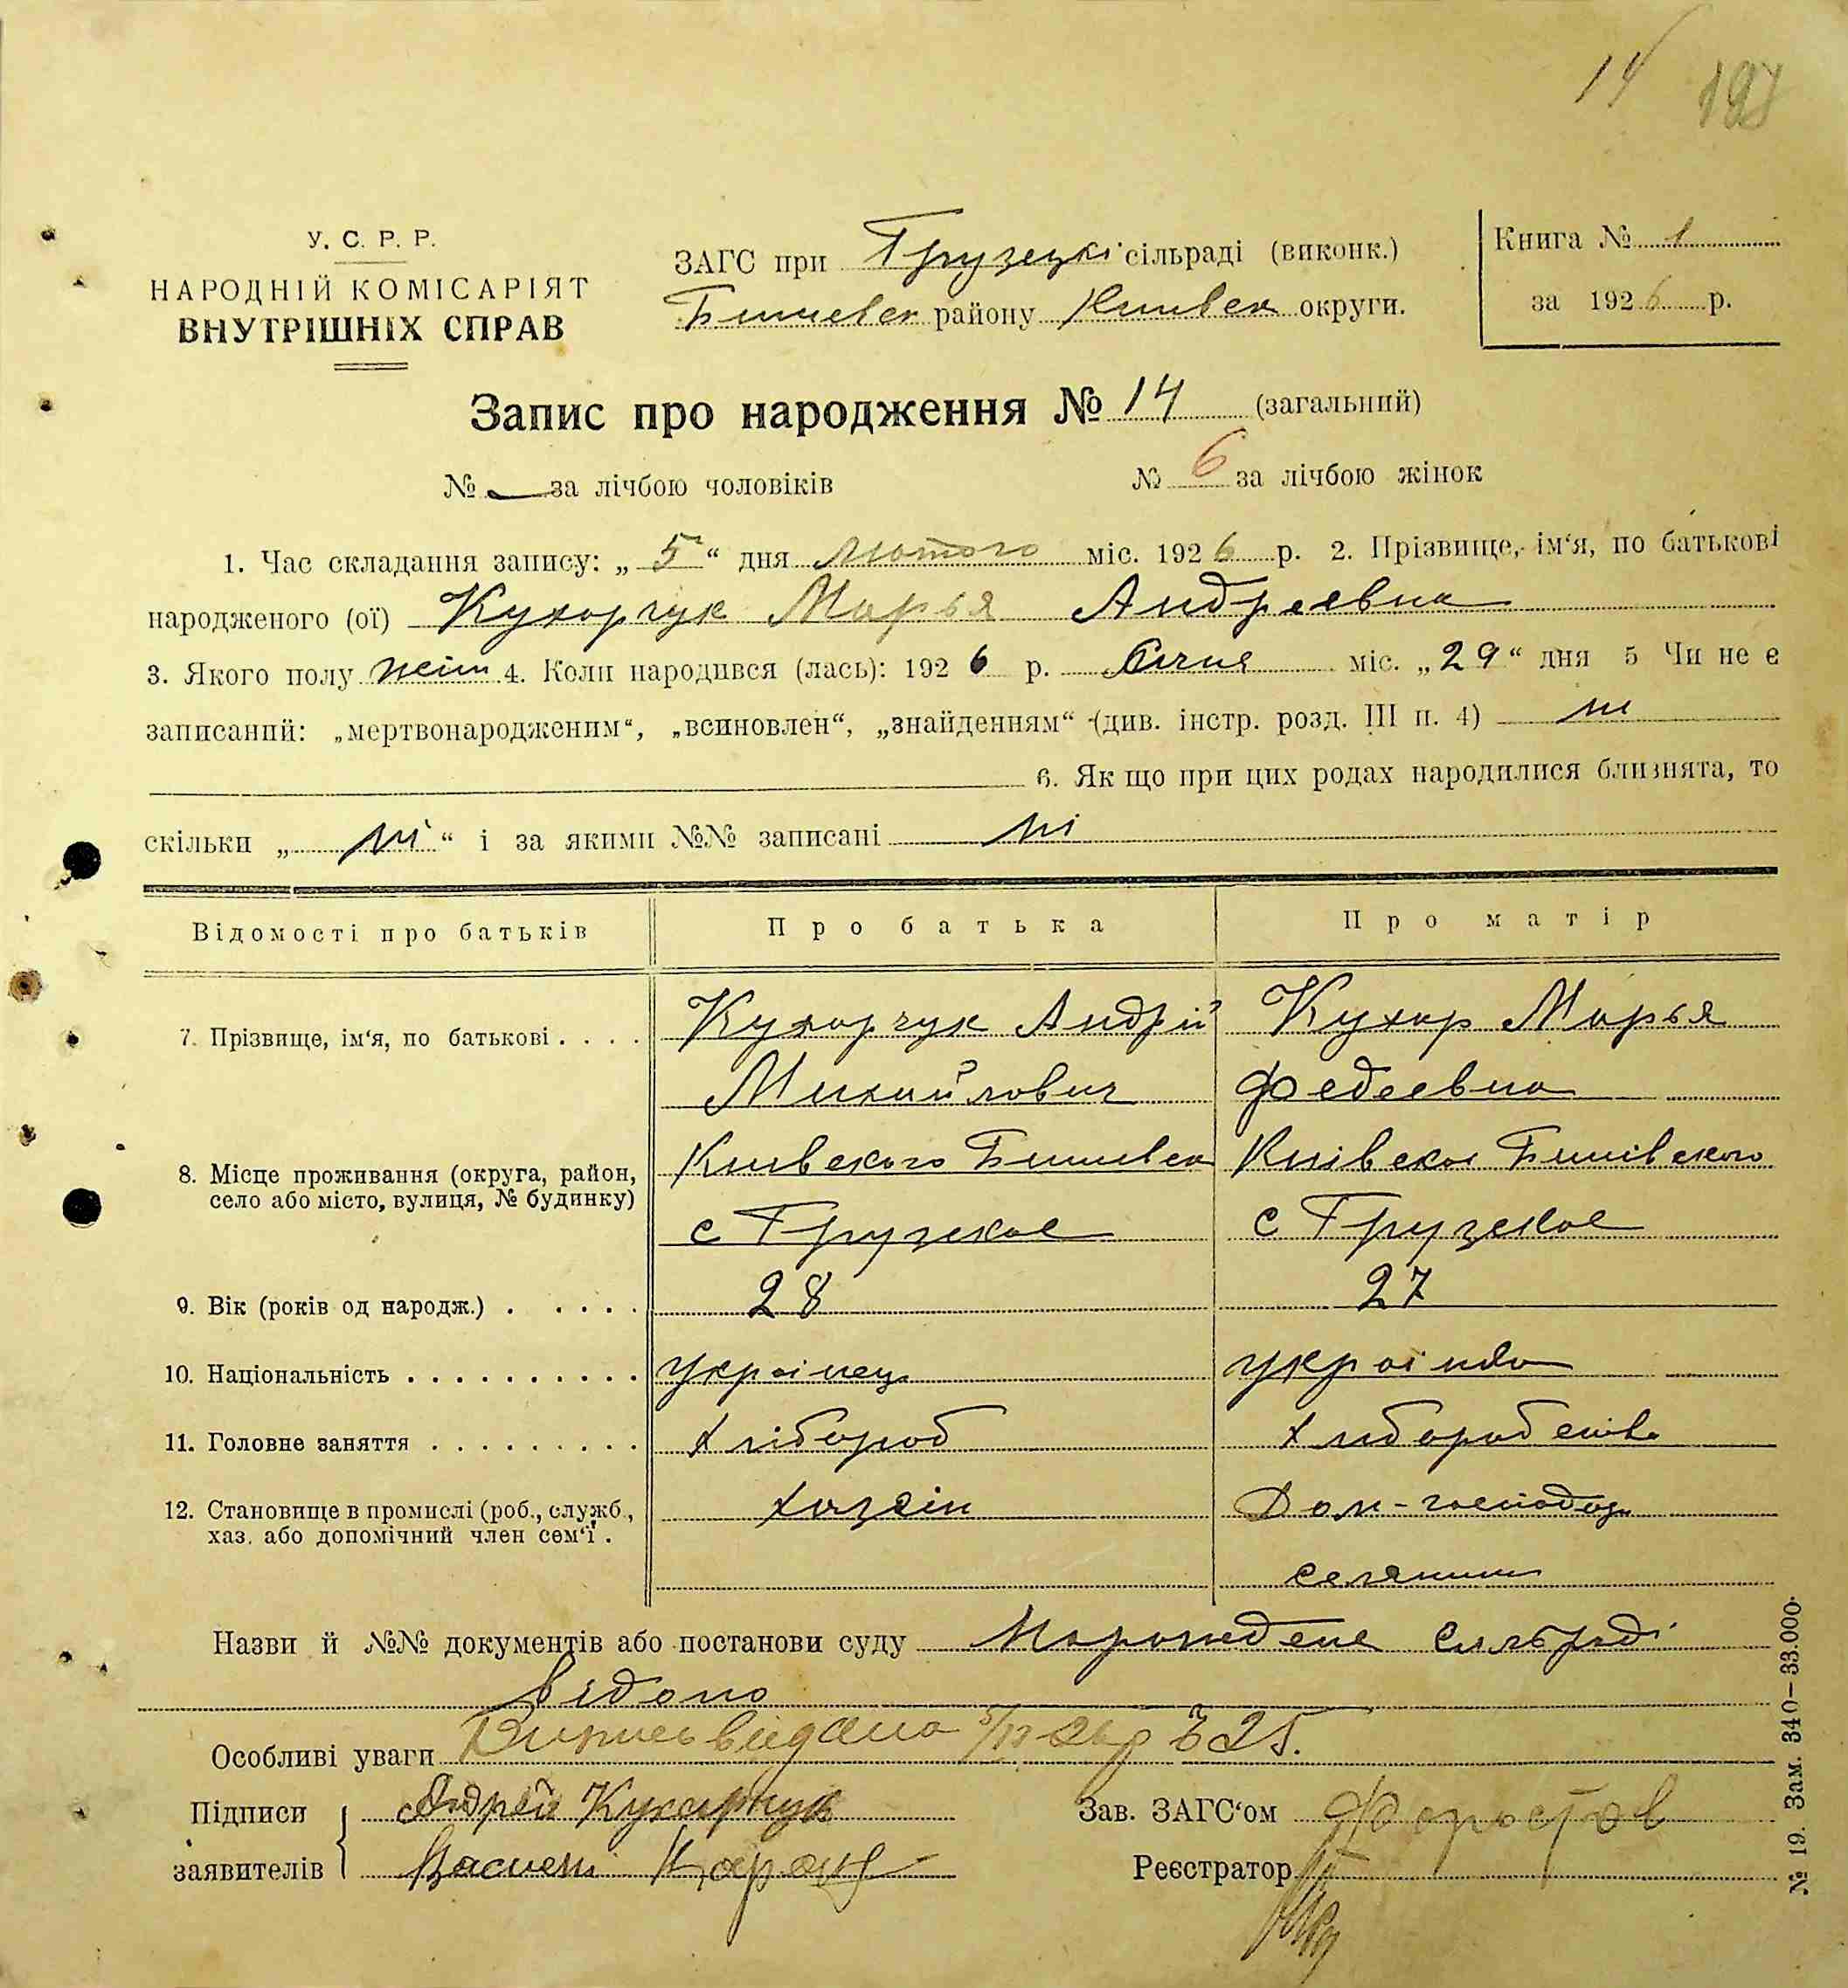 14 197
У. С. Р. Р.
НАРОДНІЙ КОМІСАРІЯТ
ВНУТРІШНІХ СПРАВ
ЗАГС при Грузецкі сільраді (виконк.)
Бишевск району Київск округи.
Книга № 1
за 1926 р.
Запис про народження № 14 (загальний)
№ — за лічбою чоловіків № 6 за лічбою жінок
1. Час складання запису: „5“ дня лютого міс. 1926 р. 2. Прізвище, ім‘я, по батькові
народженого (ої) Кухарчук Марья Андреевна
3. Якого полу жін 4. Коли народився (лась): 1926 р. Січня міс. „29“ дня 5 Чи не є
записаний: „мертвонародженим“, „всиновлен“, „знайденням“ (див. інстр. розд. III п. 4) ні
6. Як що при цих родах народилися близнята, то
скільки „ні“ і за якими №№ записані ні
Відомості про батьків Про батька Про матір
7. Прізвище, ім‘я, по батькові . . . . Кухарчук Андрій Кухар Марья
Михайлович Федеевна
8. Місце проживання (округа, район, Киівского Бишевск Киівског Бишівского
село або місто, вулиця, № будинку) с Грузское с Грузское
9. Вік (років од народж.) . . . . . 28 27
10. Національність . . . . . . . . . . українец українка
11. Головне заняття . . . . . . . . . Хлібороб Хліборобство
12. Становище в промислі (роб., служб., хазяін Дом-господар
хаз. або допомічний член сем‘ї .
селянин
Назви й №№ документів або постанови суду Нарождене сильраді
відомо
Особливі уваги Випись видана 5/II 26 р № 25.
Підписи Андрей Кухарчук Зав. ЗАГС‘ом
заявителів Реєстратор
№ 19. Зам. 340–33.000.